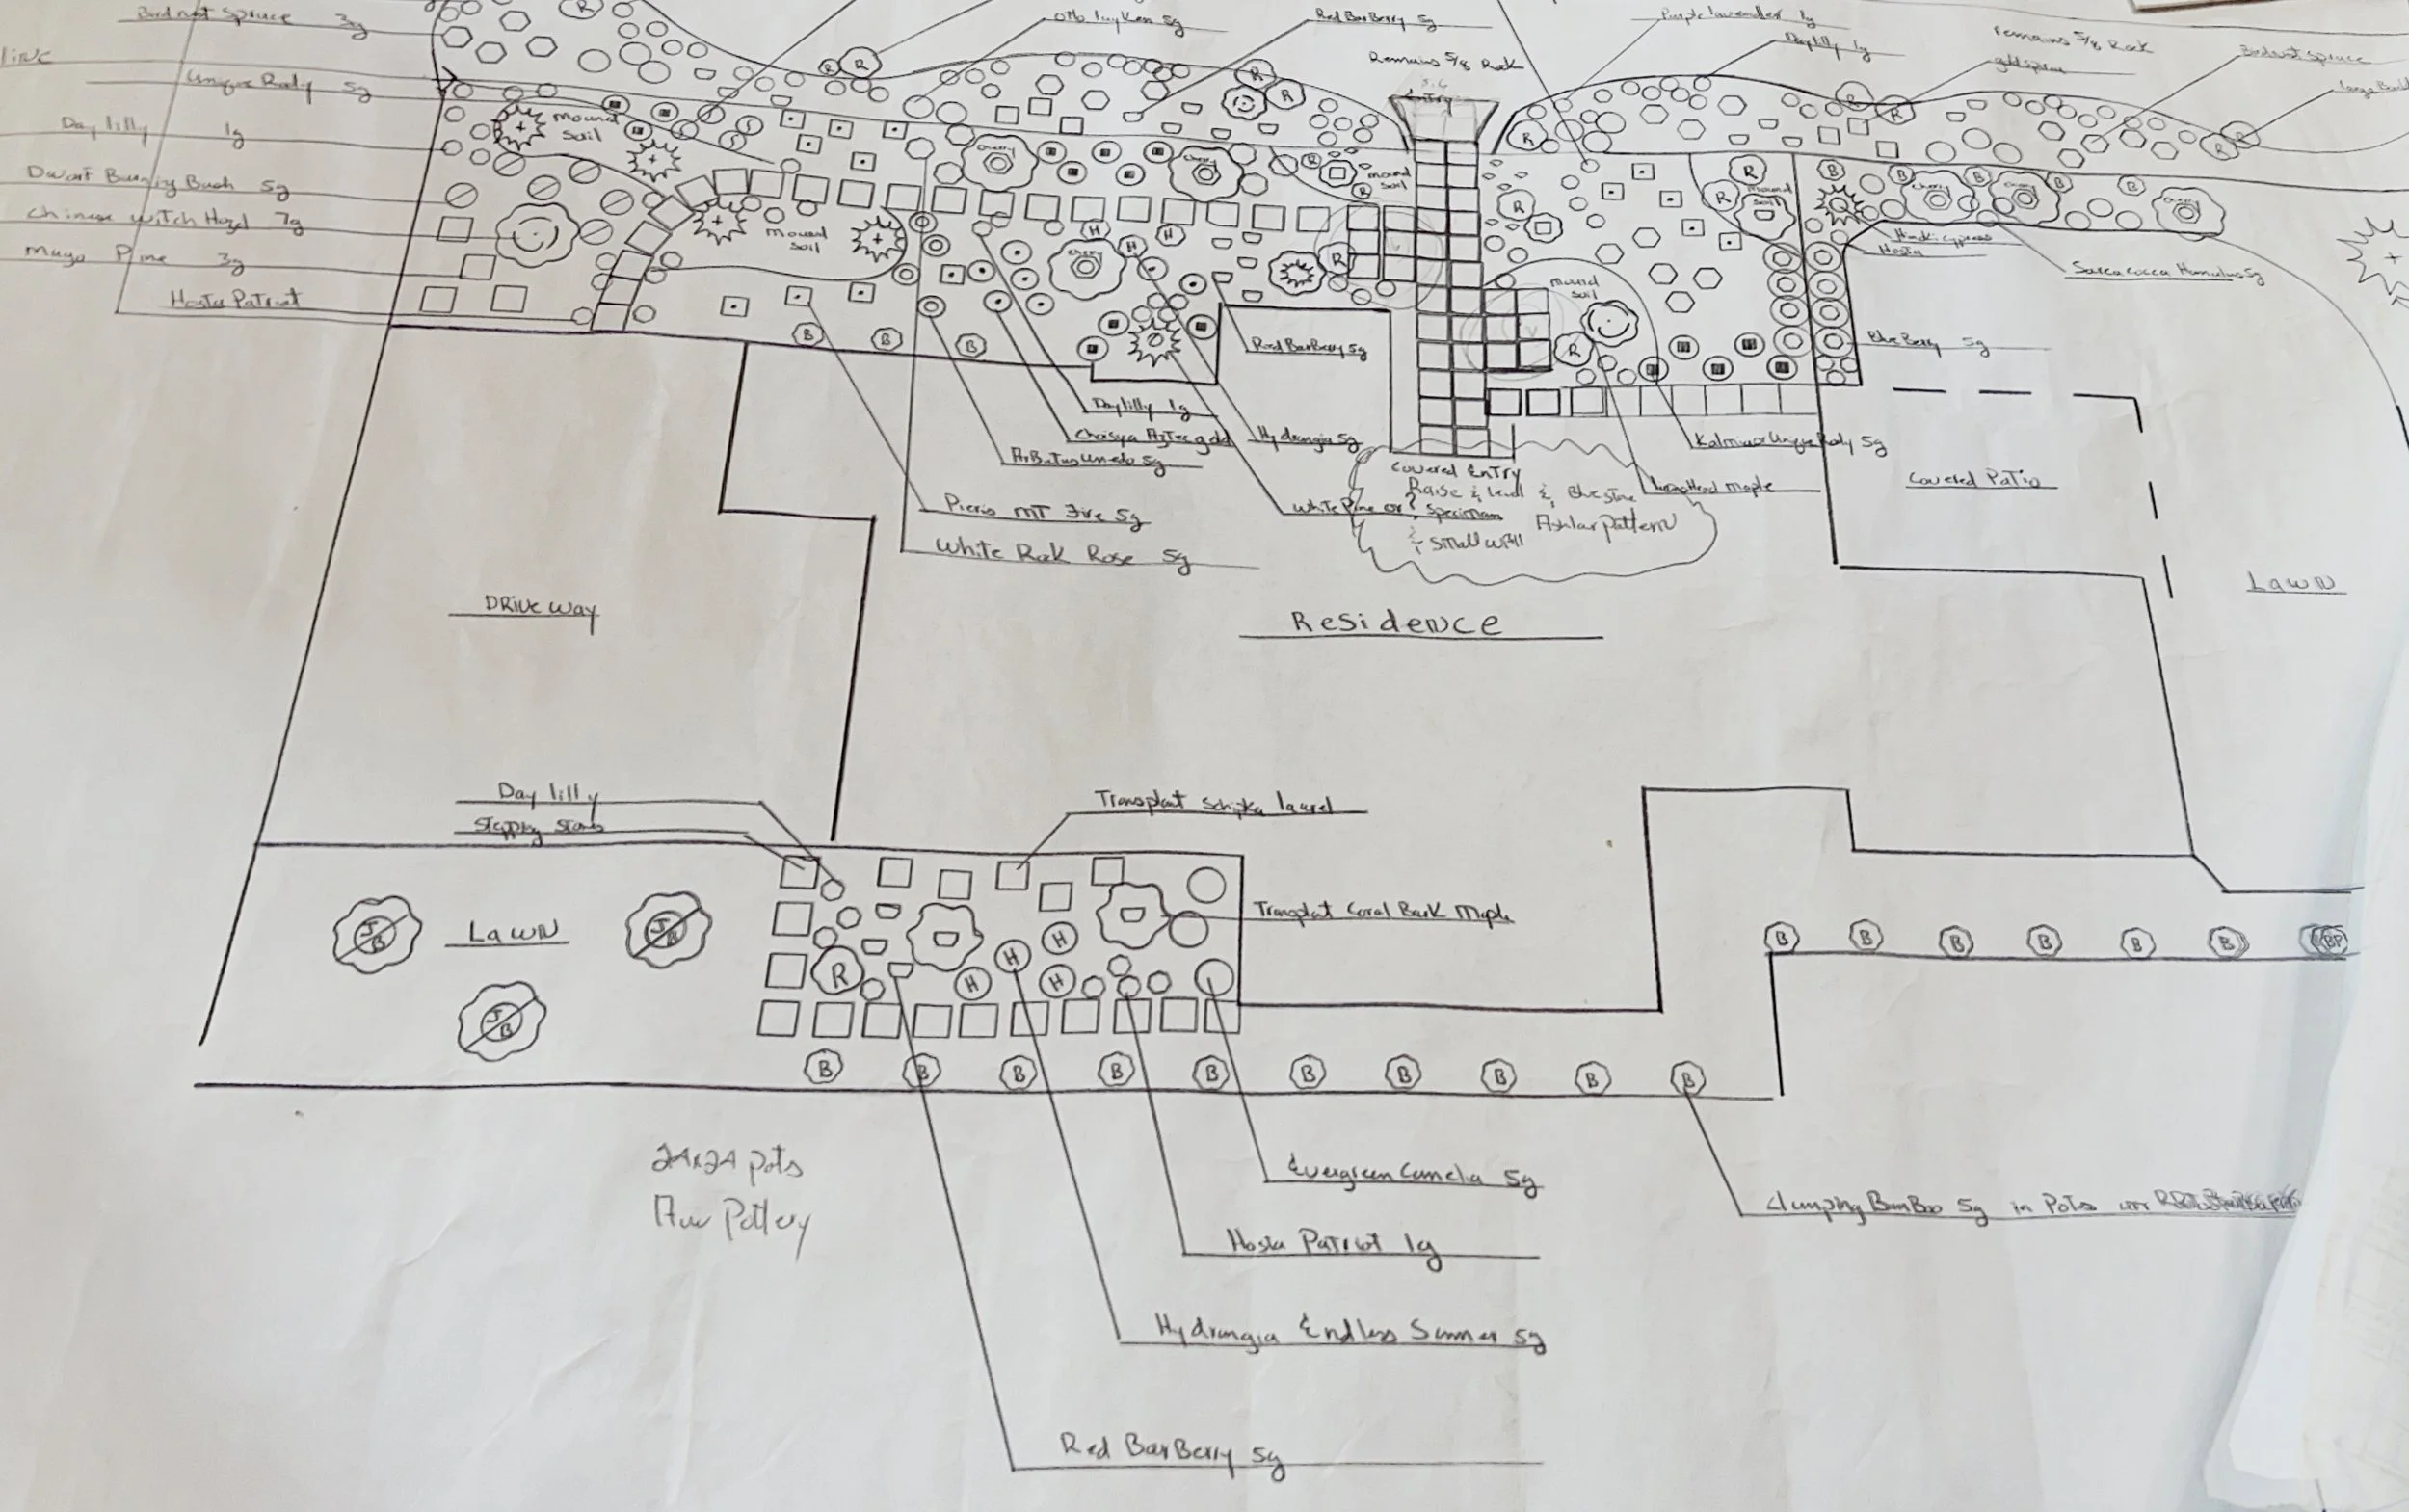 Birdnest Spruce 3g
line
Unique Rody 5g
Day lilly 1g
Dwarf Burning Bush 5g
Chinese Witch Hazel 7g
Mugo Pine 3g
Hosta Patriot
Otto luyken 5g
Red BarBerry 5g
Remains 5/8 Rock
Entry
Purple lavender 1g
Day lilly 1g
remains 5/8 Rock
gold spirea
Birdnest spruce
R
R
R
R
R
R
R
R
R
R
mound
soil
mound
soil
mound
soil
mound
soil
mound
soil
Cherry
Cherry
Cherry
Cherry
Cherry
Cherry
R
R
R
R
R
R
R
H
H
H
B
B
B
B
B
B
B
B
Hinoki cypress
Hosta
Sarcacocca Humulus 5g
BlueBerry 5g
Red BarBerry 5g
Day lilly 1g
Choisya Aztec gold
Hydrangia 5g
ArButus unedo 5g
Pieris MT Fire 5g
White Rock Rose 5g
White Pine or ? specimen
Kalmia or Unique Rody 5g
Lions Head maple
Covered Entry
Raise & level & Bluestone
Ashlar Pattern
& Small wall
Covered Patio
Lawn
DRiveway
Residence
Day lilly
Stepping Stones
Transplant Schipka laurel
Transplant Coral Bark Maple
Lawn
JB
JB
JB
R
H
H
H
H
B
B
B
B
B
B
BP
B
B
B
B
B
B
B
B
B
B
24x24 pots
Aw Pottery
Evergreen Camelia 5g
Hosta Patriot 1g
Hydrangia Endless Summer 5g
Red BarBerry 5g
Clumping BamBoo 5g in Pots